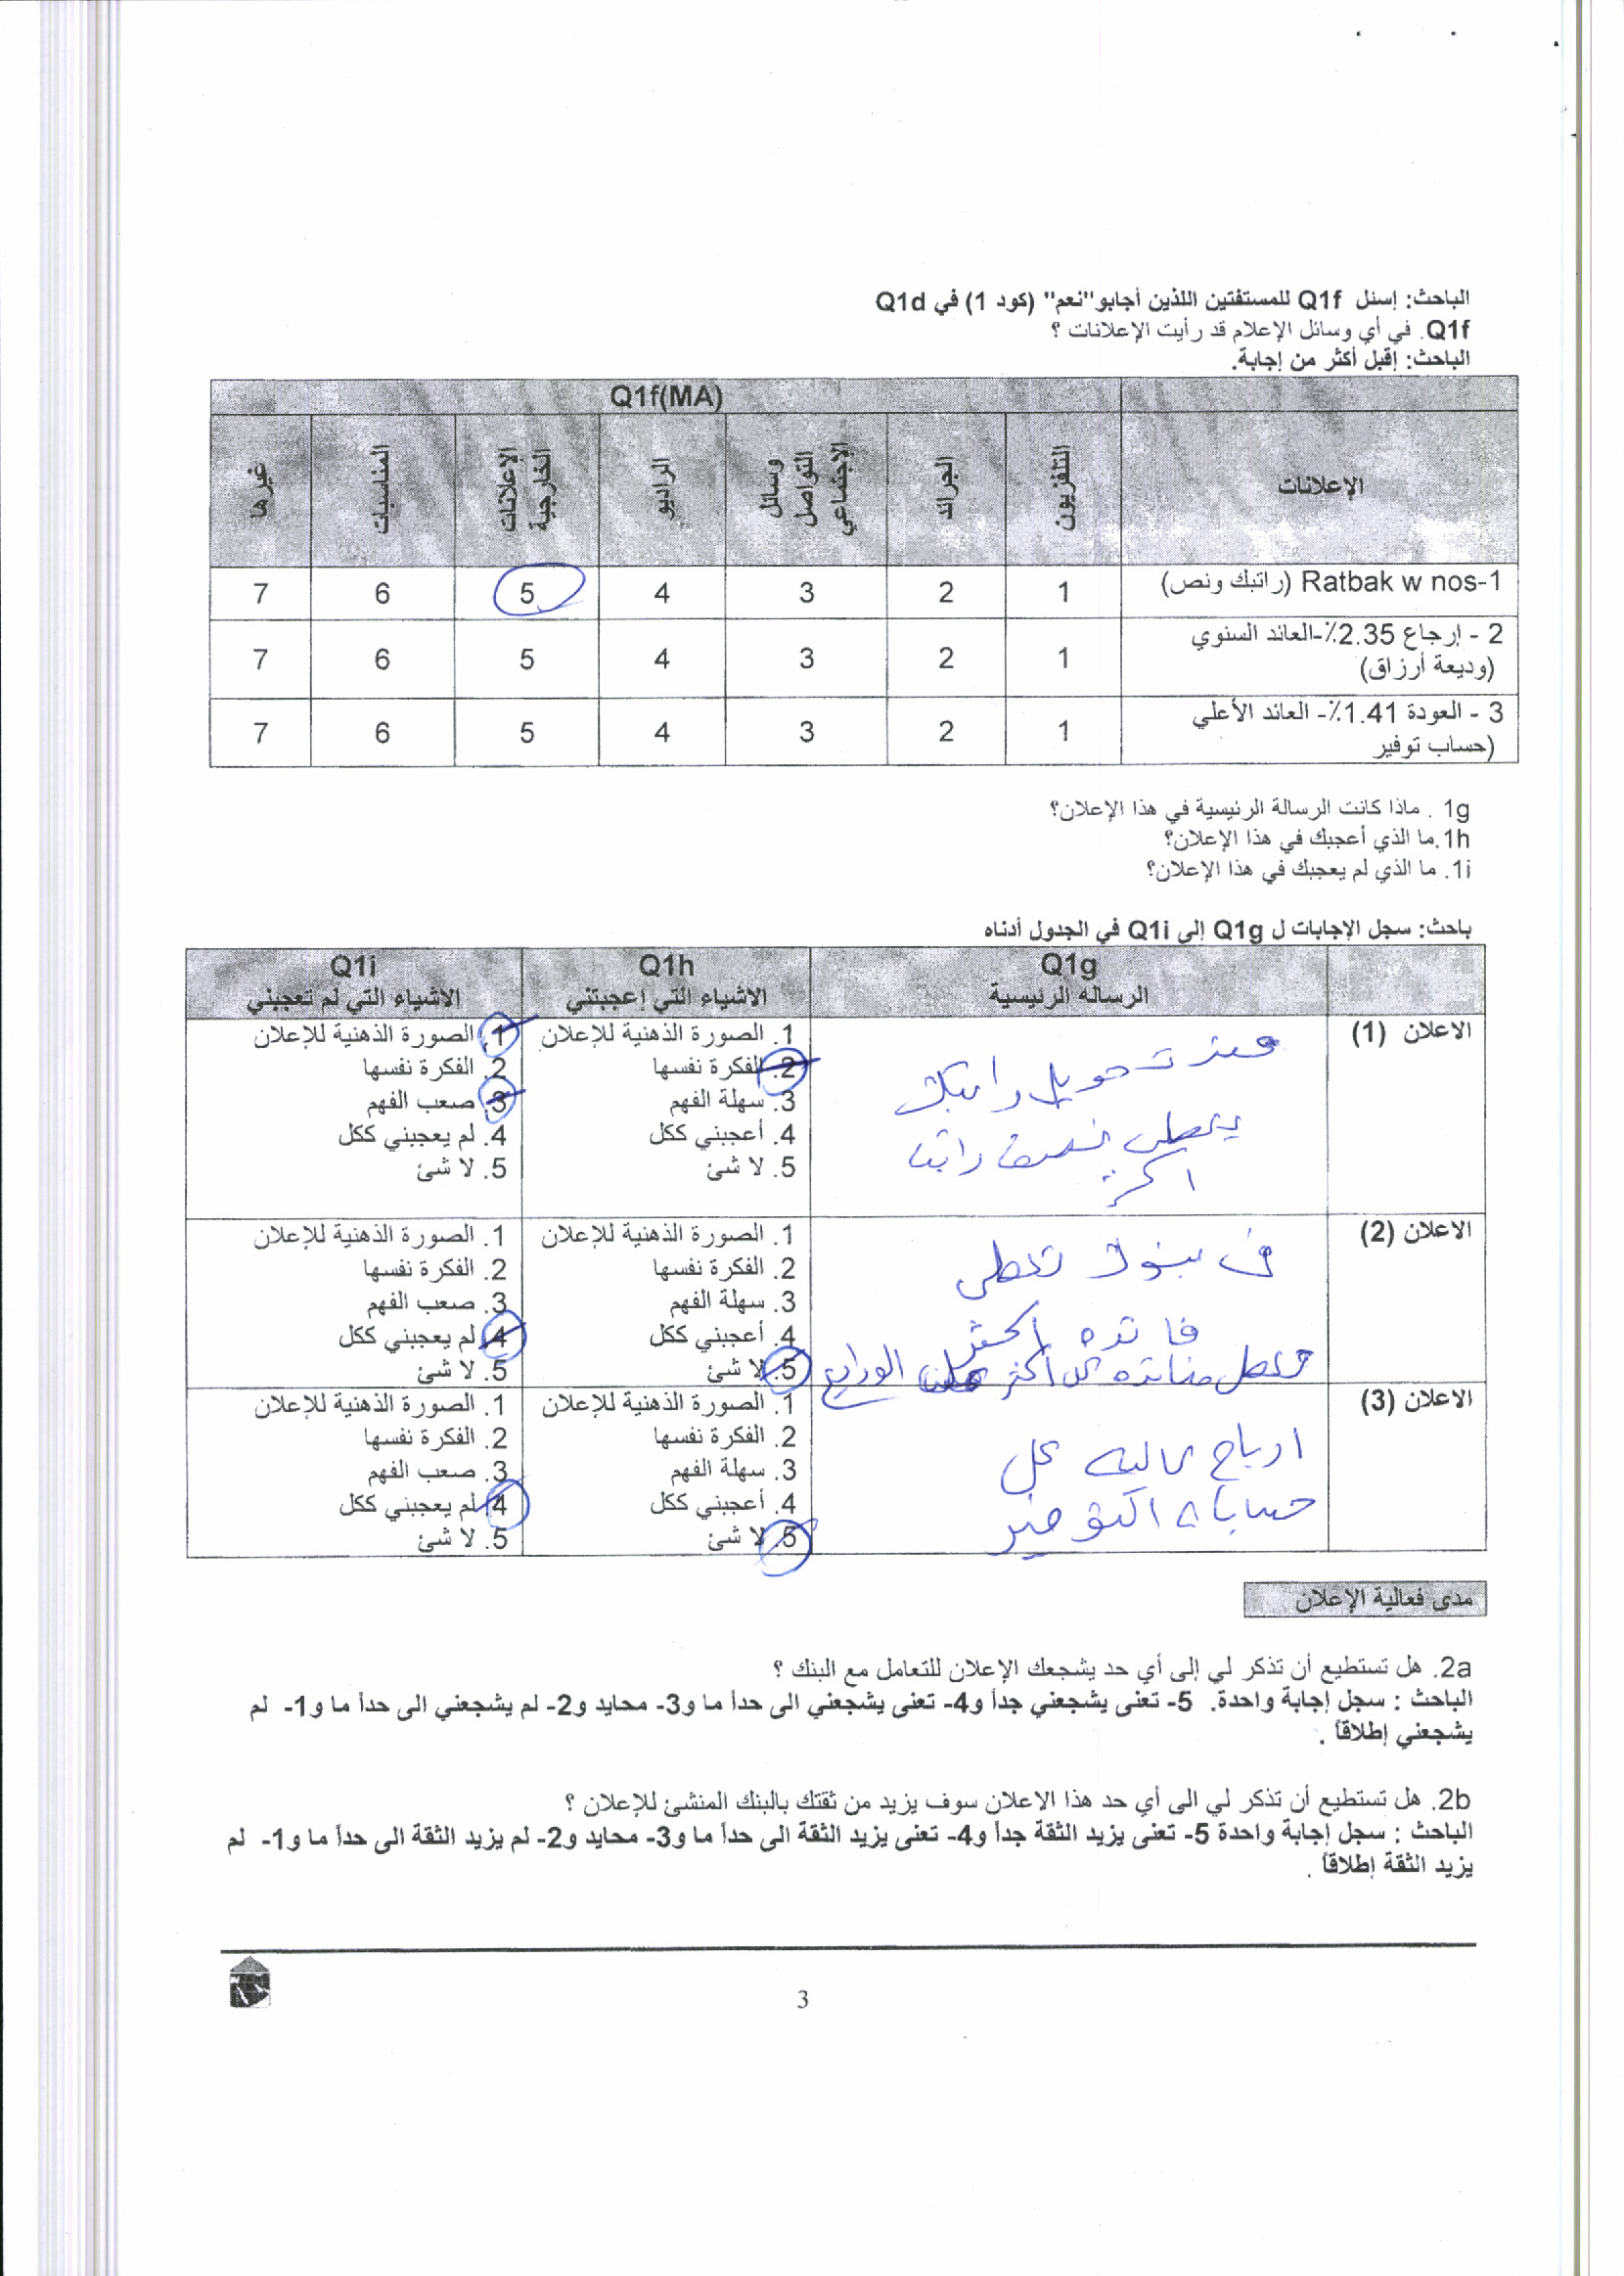 الباحث: إسئل Q1f للمستفتين اللذين أجابو"نعم" (كود 1) في Q1d
Q1f. في أي وسائل الإعلام قد رأيت الإعلانات ؟
الباحث: إقبل أكثر من إجابة.
Q1f(MA)
الإعلانات التلفزيون الجرائد وسائل التواصل الإجتماعي الراديو الإعلانات الخارجية المناسبات غيرها
Ratbak w nos-1 (راتبك ونص) 1 2 3 4 5 6 7
2 - إرجاع 2.35٪-العائد السنوي
(وديعة أرزاق) 1 2 3 4 5 6 7
3 - العودة 1.41٪- العائد الأعلي
(حساب توفير 1 2 3 4 5 6 7
1g . ماذا كانت الرسالة الرئيسية في هذا الإعلان؟
1h.ما الذي أعجبك في هذا الإعلان؟
1i. ما الذي لم يعجبك في هذا الإعلان؟
باحث: سجل الإجابات ل Q1g إلى Q1i في الجدول أدناه
Q1g Q1h Q1i
الرساله الرئيسية الاشياء التي إعجبتني الاشياء التي لم تعجبني
الاعلان (1)
عند تحويل راتبك
يعطى نصف راتب
اكثر
1. الصورة الذهنية للإعلان
2. الفكرة نفسها
3. سهلة الفهم
4. أعجبني ككل
5. لا شئ
1. الصورة الذهنية للإعلان
2. الفكرة نفسها
3. صعب الفهم
4. لم يعجبني ككل
5. لا شئ
الاعلان (2)
فى بنوك تعطى
فائده أكثر
فائده أكثر الودايع
1. الصورة الذهنية للإعلان
2. الفكرة نفسها
3. سهلة الفهم
4. أعجبني ككل
5. لا شئ
1. الصورة الذهنية للإعلان
2. الفكرة نفسها
3. صعب الفهم
4. لم يعجبني ككل
5. لا شئ
الاعلان (3)
ارباح عاليه على
حسابات التوفير
1. الصورة الذهنية للإعلان
2. الفكرة نفسها
3. سهلة الفهم
4. أعجبني ككل
5. لا شئ
1. الصورة الذهنية للإعلان
2. الفكرة نفسها
3. صعب الفهم
4. لم يعجبني ككل
5. لا شئ
مدى فعالية الإعلان
2a. هل تستطيع أن تذكر لي إلى أي حد يشجعك الإعلان للتعامل مع البنك ؟
الباحث : سجل إجابة واحدة. 5- تعنى يشجعني جداً و4- تعنى يشجعني الى حداً ما و3- محايد و2- لم يشجعني الى حداً ما و1- لم
يشجعني إطلاقاً .
2b. هل تستطيع أن تذكر لي الى أي حد هذا الاعلان سوف يزيد من ثقتك بالبنك المنشئ للإعلان ؟
الباحث : سجل إجابة واحدة 5- تعنى يزيد الثقة جداً و4- تعنى يزيد الثقة الى حداً ما و3- محايد و2- لم يزيد الثقة الى حداً ما و1- لم
يزيد الثقة إطلاقاً .
3